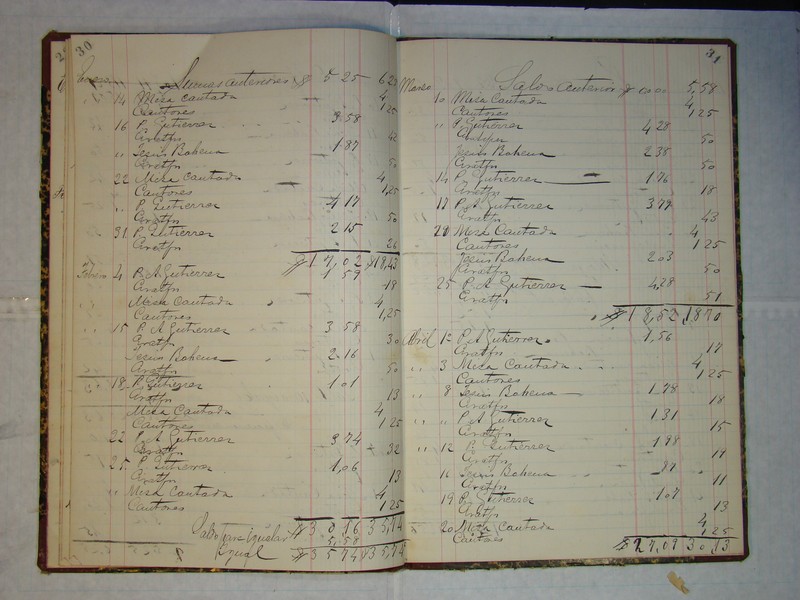 30
Enero Sumas anteriores $ 5 25 6 2
14 Misa Cantada 4
Cantores 1 25
16 P. Gutierrez 3.58
Gratfn 42
" Jesús Bahena 1.87
Gratfn 50
22 Misa Cantada 4
Cantores 1,25
" P. Gutierrez 4 17
Gratfn 50
31 P. Gutierrez 2 15
Gratfn 26
$ 17,02 $18,43
Febrero 4 P. A Gutierrez 1 59
Gratfn 18
Misa Cantada 4
Cantores 1,25
15 P. A Gutierrez 3 58
Gratfn 30
Jesús Bahena 2.16
Gratfn 50
18 P. Gutierrez 1 01
Gratfn 13
Misa Cantada 4
Cantores 1 25
22 P. A Gutierrez 3 74
Gratfn 32
25 P. Gutierrez 1,06
Gratfn 13
" Misa Cantada 4
Cantores 1 25
$ 30 16 35,74
Saldo para igualar 5,58
Igual $ 35 74 $35,74
31
Marzo Saldo anterior $ 00 00 5,58
10 Misa Cantada 4
Cantores 1 25
" P. Gutierrez 4 28
Gratfn 50
Jesús Bahena 2 38
Gratfn 50
14 P. Gutierrez 1 76
Gratfn 18
17 P. A Gutierrez 3 79
Gratfn 43
20 Misa Cantada 4
Cantores 1 25
Jesús Bahena 2 03
Gratfn 50
25 P. A Gutierrez 4,28
Gratfn 51
$ 18,52 18 70
Abril 1º P. A Gutierrez 1,56
Gratfn 17
" 3 Misa Cantada 4
Cantores 1 25
" 8 Jesús Bahena 1 78
Gratfn 18
" P. A Gutierrez 1 31
Gratfn 15
" 12 P. Gutierrez 1 98
Gratfn 19
Jesús Bahena
Gratfn 11
19 P. Gutierrez 1 07
Gratfn 13
20 Misa Cantada 4
Cantores 1,25
$ 27,09 30 13